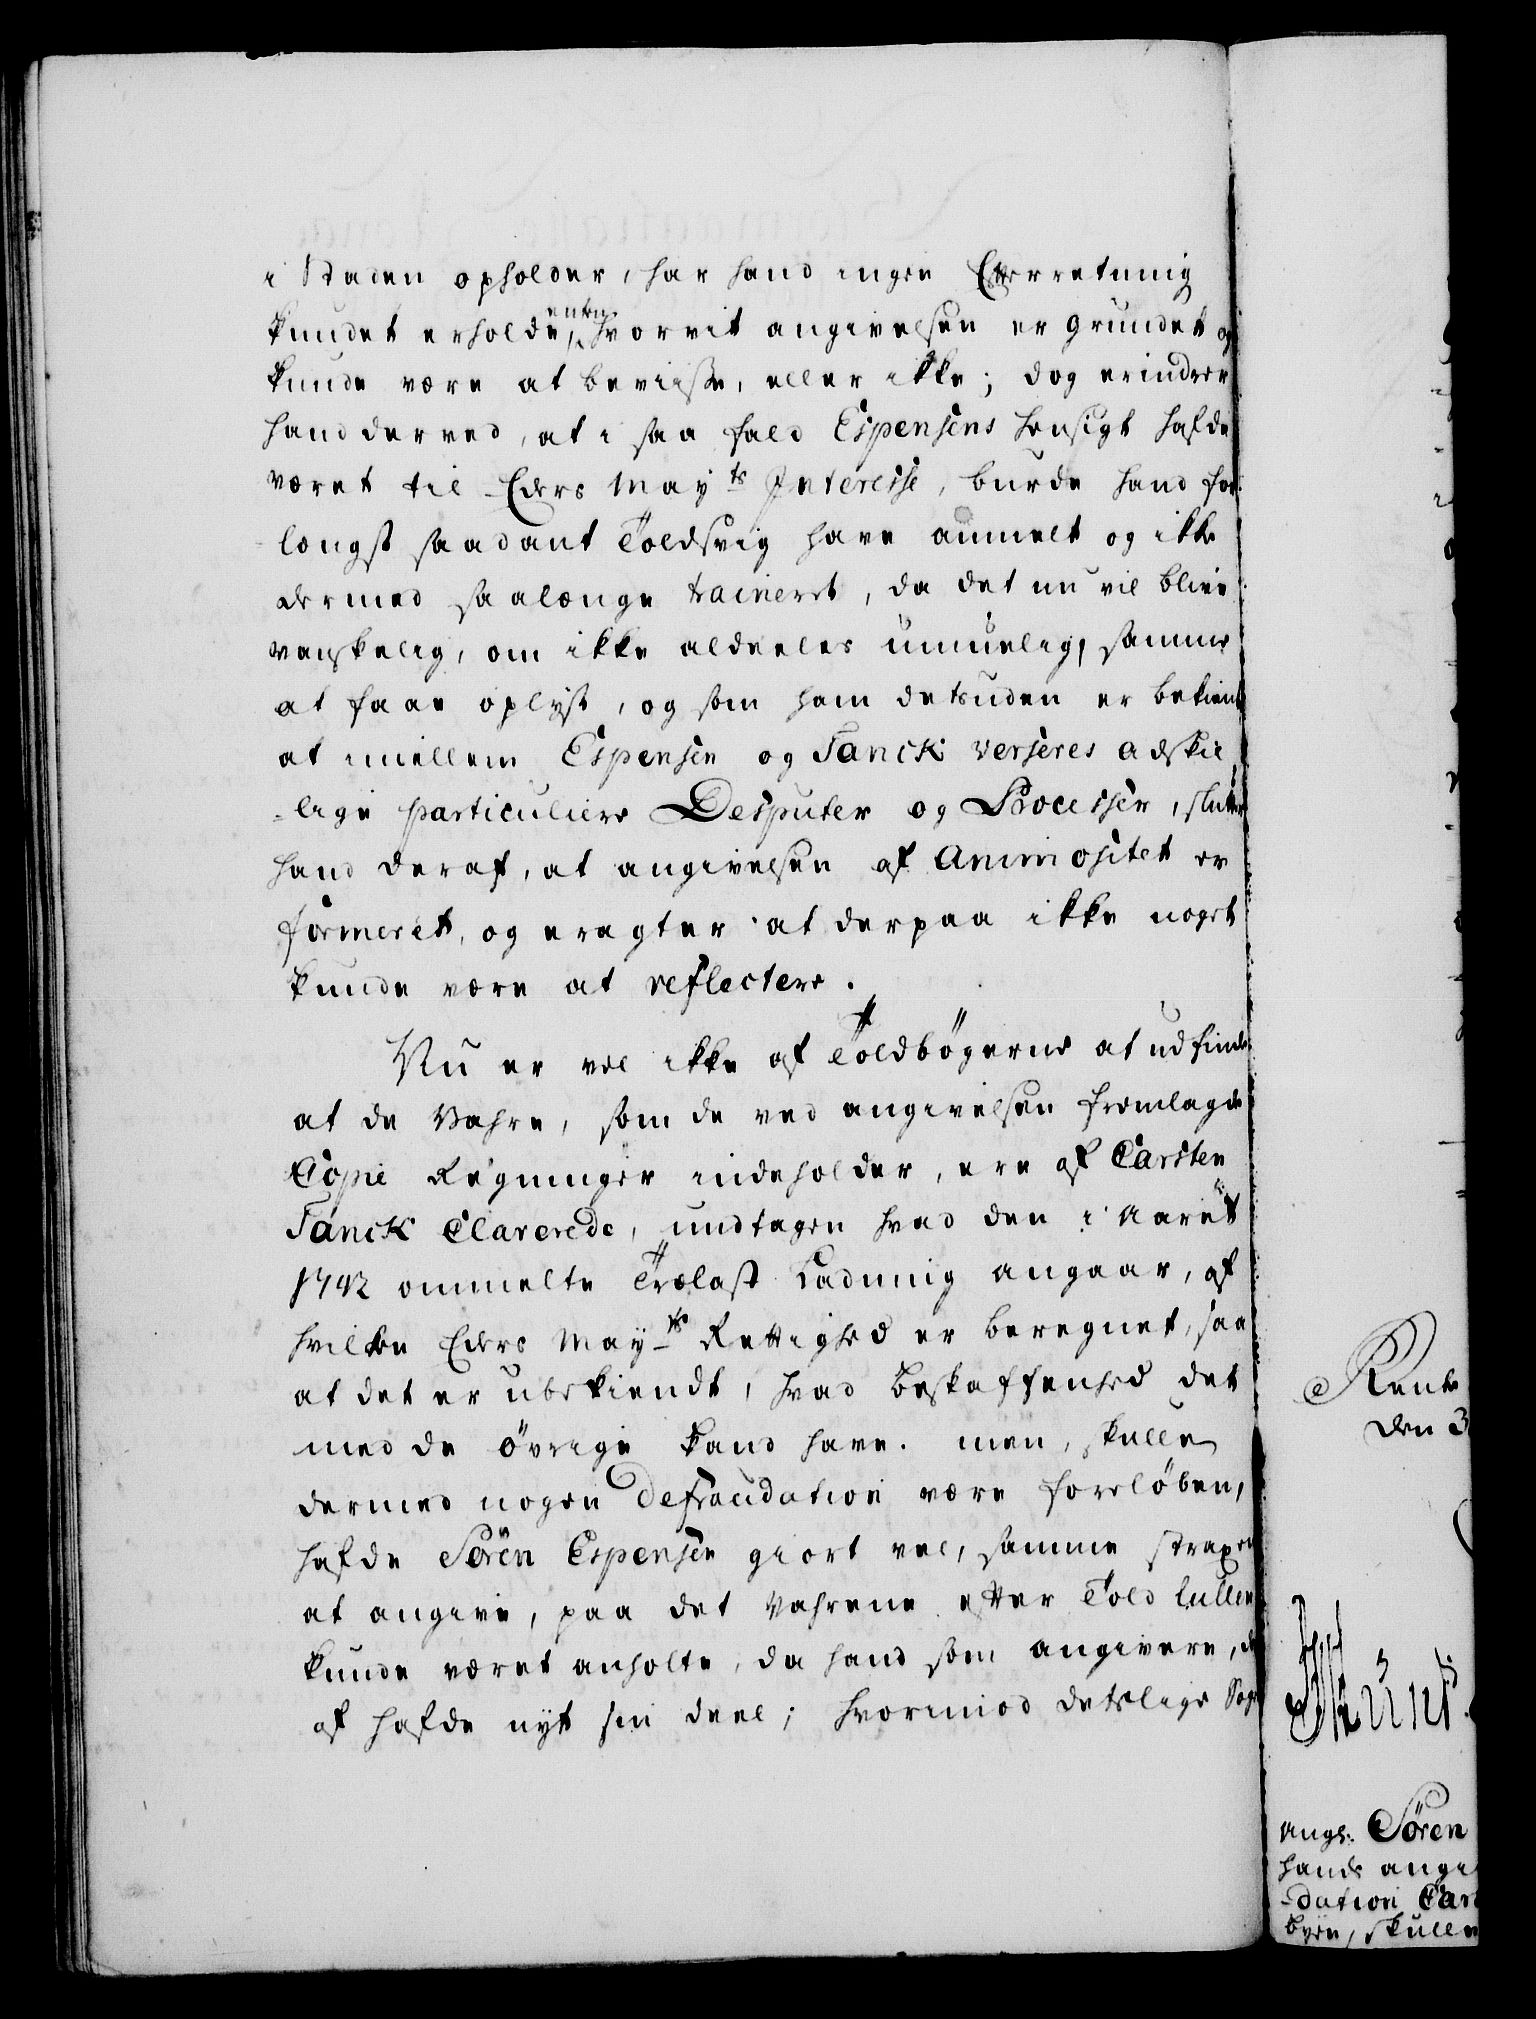 i Staden opholder, har hand ingen Efterretning
kundet erholde, enten hvorvit angivelsen er grundet og
kunde være at beviiße, eller ikke; dog erindrer
hand derved, at i saa fald Espensens hensigt hafde
været til Eders Mayts Interesse, burde hand for
længst saadant Toldsvig have anmelt og ikke
dermed saalænge traineret, da det nu vil blive
vanskelig, om ikke aldeeles umuelig, samme
at faae oplyst, og som ham desuden er bekient
at imellem Espensen og Tanck verseres adskil
-lige particuliere Disputer og Processer, slutter
hand deraf, at angivelsen af Animositet er
formeret, og eragter at derpaa ikke noget
kunde være at reflectere.
Nu er vel ikke af Toldbøgerne at udfinde
at de Vahre, som de ved angivelsen fremlagde
Copie Regninger indeholder, ere af Carsten
Tanck Clarerede, undtagen hvad den i Aaret
1742 ommelte Trælast Ladning angaar, af
hvilken Eders Mayts Rettighed er beregnet, saa
at det er ubekiendt, hvad beskaffenhed det
med de øvrige kand have. men, skulle
dermed nogen defraudation være foreløben,
hafde Søren Espensen giort vel, samme straxen
at angive, paa det Vahrene efter Told Rullen
kunde været anholte, da hand som angivere, der
af hafde nyt sin deel; hvorimod deslige Sag
Rente
den 3
angl. Søren
hands angi
-dation Car
byen, skulle